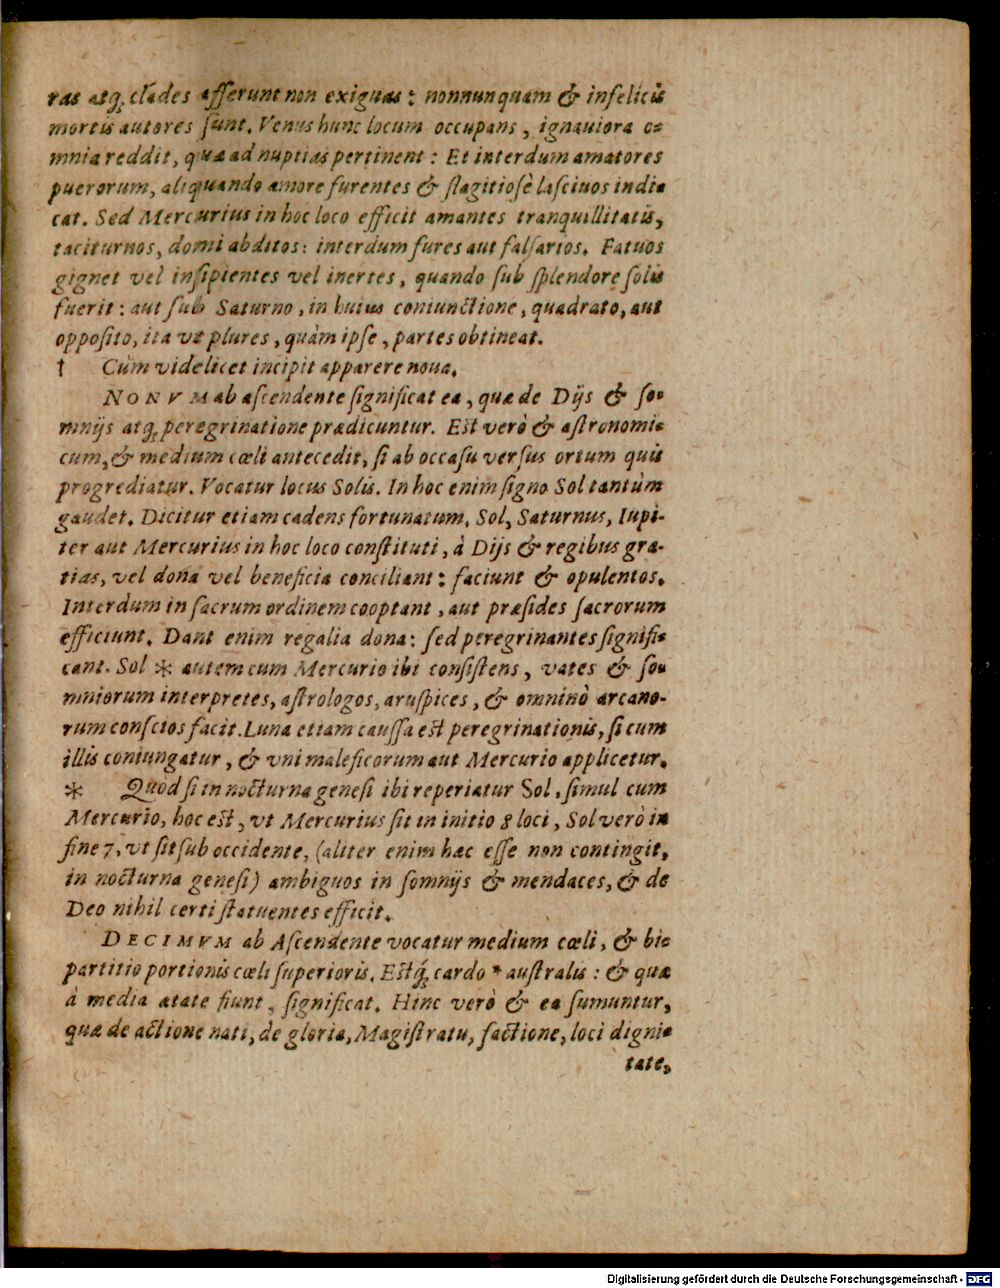 ras atq; clades afferunt non exiguas: nonnunquam & infelicis
mortis autores sunt. Venus hunc locum occupans, ignauiora o-
mnia reddit, quæ ad nuptias pertinent: Et interdum amatores
puerorum, aliquando amore furentes & flagitiosè lasciuos indi-
cat. Sed Mercurius in hoc loco efficit amantes tranquillitatis,
taciturnos, domi abditos: interdum fures aut falsarios. Fatuos
gignet vel insipientes vel inertes, quando sub splendore solis
fuerit: aut sub Saturno, in huius coniunctione, quadrato, aut
opposito, ita vt plures, quàm ipse, partes obtineat.
† Cùm videlicet incipit apparere noua.
NONVM ab ascendente significat ea, quæ de Dijs & so-
mnijs atq; peregrinatione prædicuntur. Est verò & astronomi-
cum, & medium cœli antecedit, si ab occasu versus ortum quis
progrediatur. Vocatur locus Solis. In hoc enim signo Sol tantùm
gaudet. Dicitur etiam cadens fortunatum. Sol, Saturnus, Iupi-
ter aut Mercurius in hoc loco constituti, à Dijs & regibus gra-
tias, vel dona vel beneficia conciliant: faciunt & opulentos.
Interdum in sacrum ordinem cooptant, aut præsides sacrorum
efficiunt. Dant enim regalia dona: sed peregrinantes signifi-
cant. Sol * autem cum Mercurio ibi consistens, vates & so-
mniorum interpretes, astrologos, aruspices, & omninò arcano-
rum conscios facit. Luna etiam caussa est peregrinationis, si cum
illis coniungatur, & vni maleficorum aut Mercurio applicetur.
* Quod si in nocturna genesi ibi reperiatur Sol, simul cum
Mercurio, hoc est, vt Mercurius sit in initio 8 loci, Sol verò in
fine 7, vt sit sub occidente, (aliter enim hæc esse non contingit,
in nocturna genesi) ambiguos in somnijs & mendaces, & de
Deo nihil certi statuentes efficit.
DECIMVM ab Ascendente vocatur medium cœli, & bi-
partitio portionis cœli superioris. Estq́; cardo * australis: & quæ
à media ætate fiunt, significat. Hinc verò & ea sumuntur,
quæ de actione nati, de gloria, Magistratu, factione, loci digni-
tate,
Digitalisierung gefördert durch die Deutsche Forschungsgemeinschaft - DFG